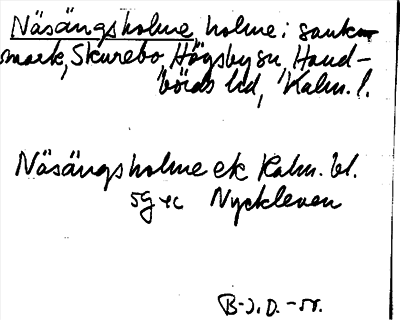 Näsängsholme, holme i sank-
mark, Skurebo, Högsby sn, Hand-
börds hd, Kalm. l.
Näsängsholme ek Kalm. bl.
5g yc Nyckleven
B-J.D. -58.